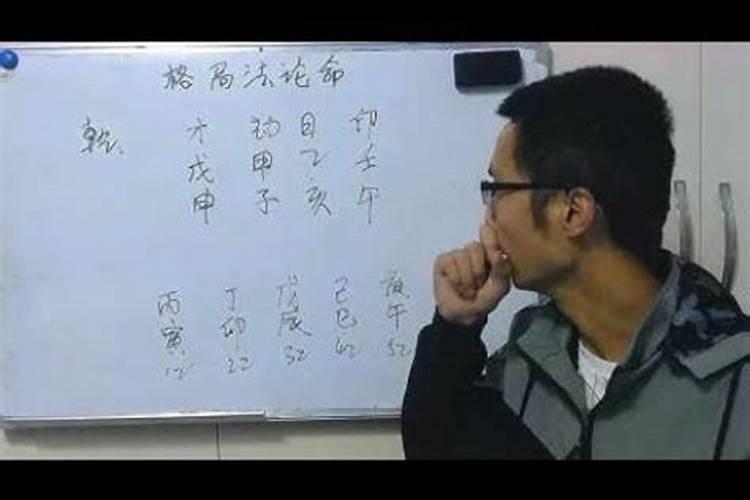 格局法论命
乾、 才 劫 日 印
戊 甲 乙 壬
申 子 亥 午
丙 丁 戊 己 庚
寅 卯 辰 巳 午
12 22 32 42 52